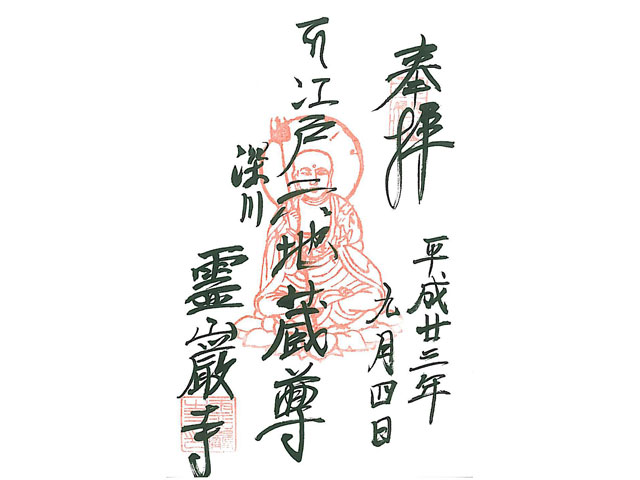 奉拝
平成廿三年
九月四日
江戸六地蔵尊
深川
霊巌寺